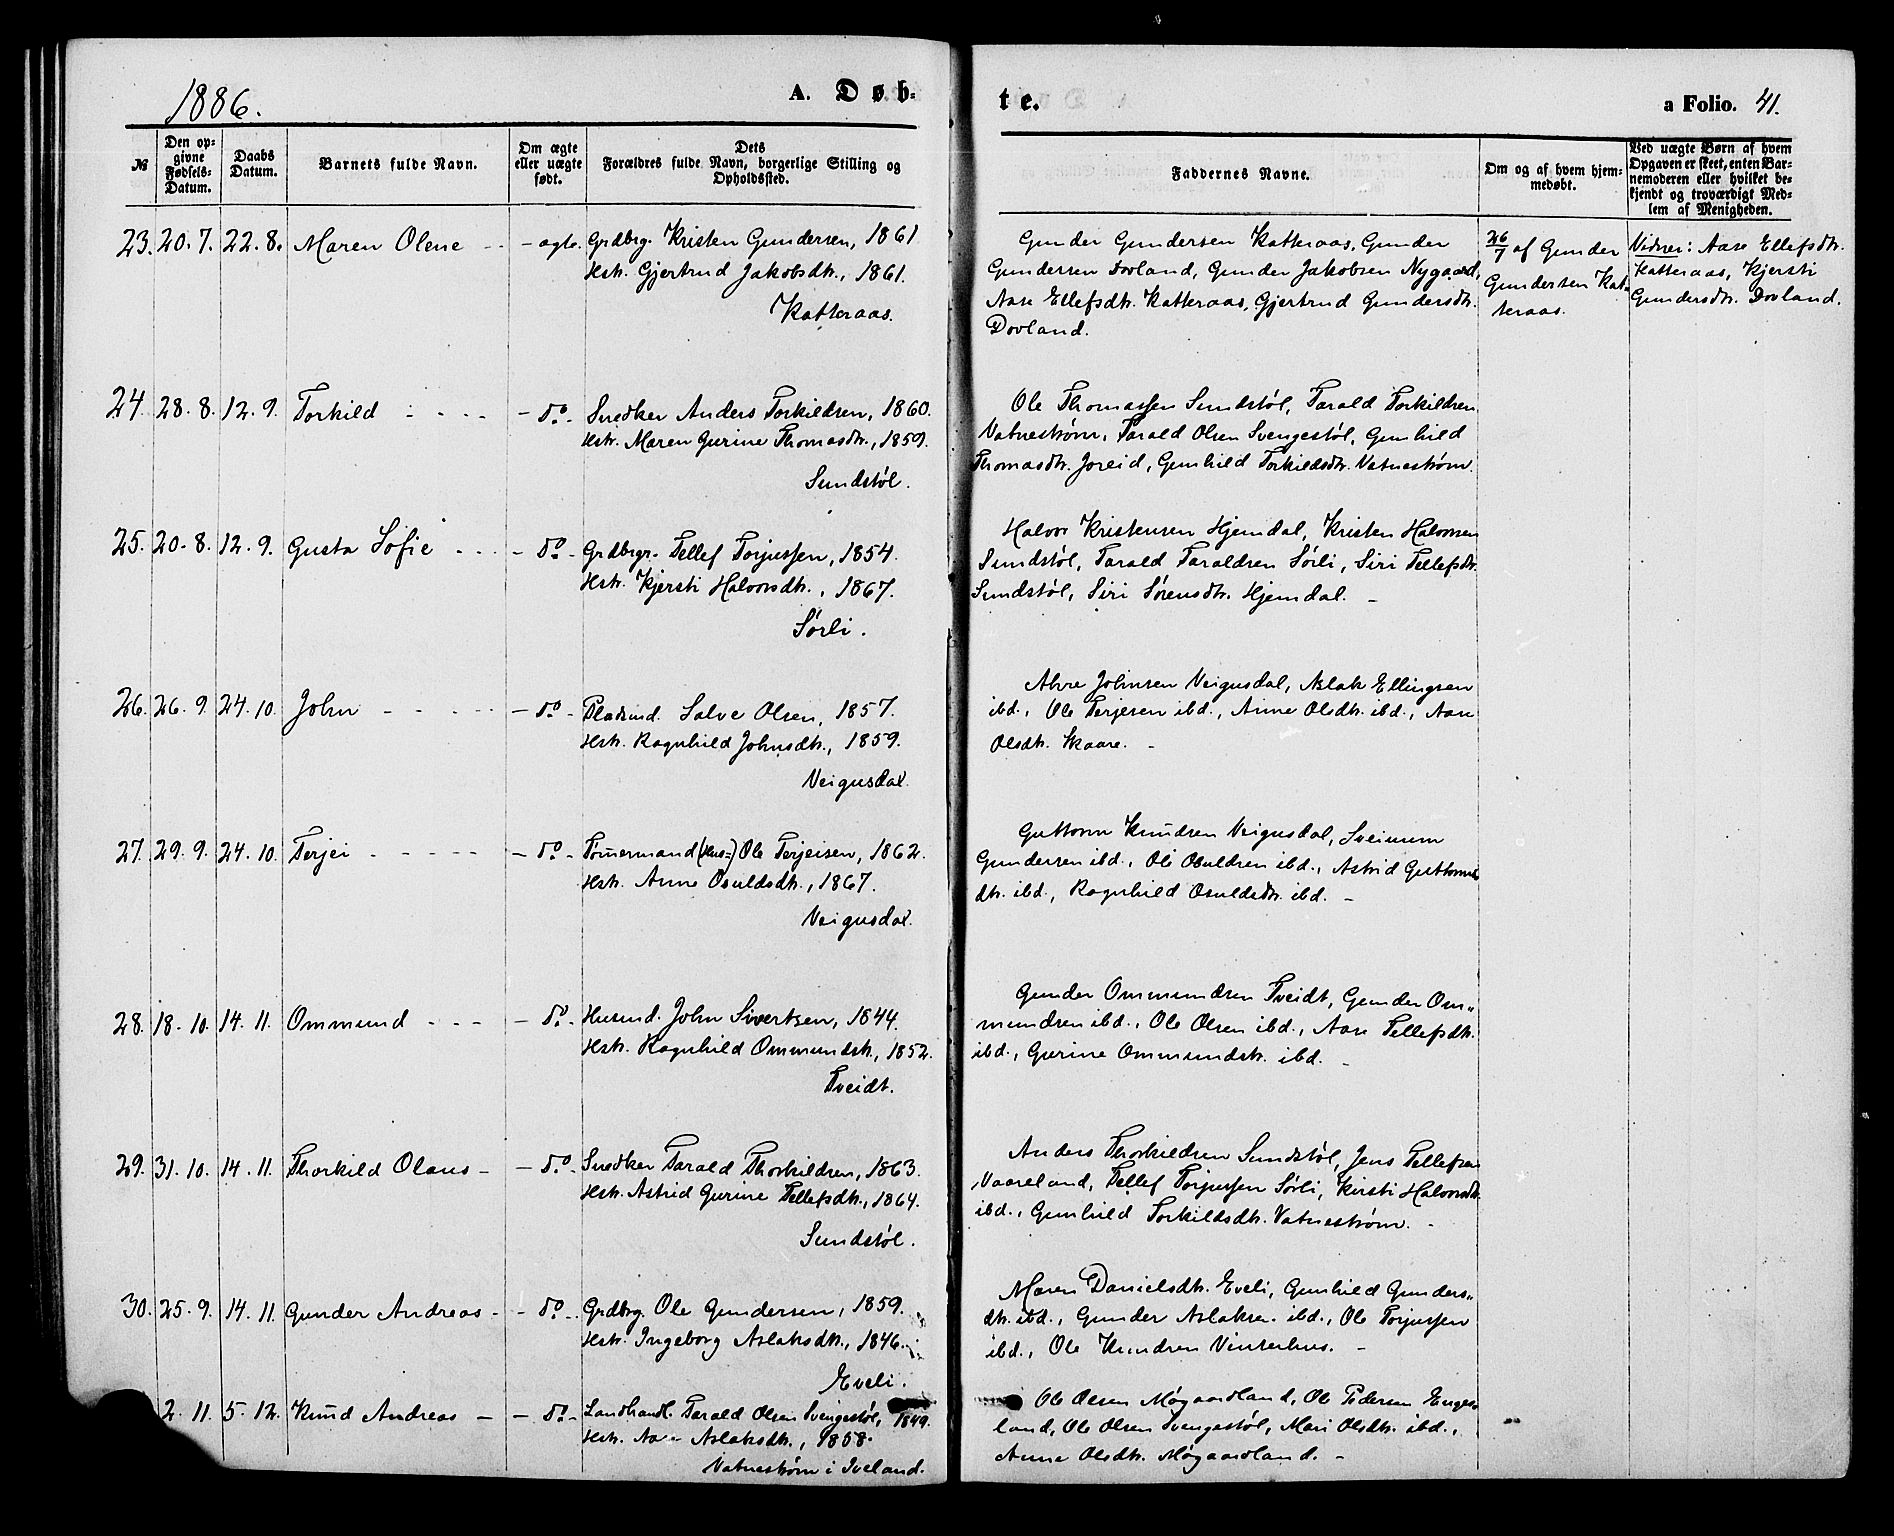 1886.
A. Døb-
te.
a Folio. 41.
№
Den op-
givne
Fødsels-
Datum.
Daabs
Datum.
Barnets fulde Navn.
Om ægte
eller uægte
født.
Dets
Forældres fulde Navn, borgerlige Stilling og
Opholdssted.
Faddernes Navne.
Om og af hvem hjem-
medøbt.
Ved uægte Børn af hvem
Opgaven er skeet, enten Bar-
nemoderen eller hvilket be-
kjendt og troværdigt Med-
lem af Menigheden.
23. 20.7. 22.8. Maren Olene - - - ægte. Grdbrg. Kristen Gundersen, 1861
Hstr. Gjertrud Jakobsdtr., 1861.
Katteraas.
Gunder Gundersen Katteraas, Gunder
Gundersen Dovland, Gunder Jakobsen Nygaard,
Aase Ellefsdtr. Katteraas, Gjertrud Gundersdtr.
Dovland.
26/7 af Gunder
Gundersen Kat-
teraas.
Vidner: Aase Ellefsdtr.
Katteraas, Kjersti
Gundersdtr. Dovland.
24. 28.8. 12.9. Torkild - - - - - do. - Snedker Anders Torkildsen, 1860.
Hstr. Maren Gurine Thomasdtr., 1859.
Sundstøl.
Ole Thomassen Sundstøl, Tarald Torkildsen
Vatnestrøm, Tarald Olsen Svengestøl, Gunhild
Thomasdtr. Joreid, Gunhild Torkildsdtr. Vatnestrøm.
25. 20.8. 12.9. Gusta Sofie - - - - do - Grdbrgr. Tellef Torjussen, 1854.
Hstr. Kjersti Halvorsdtr., 1867.
Sørli.
Halvor Kristensen Hjemdal, Kristen Halvorsen
Sundstøl, Tarald Taraldsen Sørli, Siri Tellefsdtr.
Sundstøl, Siri Sørensdtr. Hjemdal. -
26. 26.9. 24.10. John - - - - - do - Pladsmd. Salve Olsen, 1857.
Hstr. Ragnhild Johnsdtr., 1859.
Veigusdal.
Johnsen Veigusdal, Aslak Ellingsen
ibd., Ole Terjesen ibd., Anne Olsdtr. ibd., Aase
Olsdtr. Skaare. -
27. 29.9. 24.10. Terjei - - - - - - do - Tømermand (Hus=) Ole Terjeisen, 1862.
Hstr. Anne Osuldsdtr., 1867.
Veigusdal.
Guttorm Knudsen Veigusdal, Sveinum
Gundersen ibd., Ole Osuldsen ibd., Astrid Guttorms
dtr. ibd., Ragnhild Osuldsdtr. ibd. -
28. 18.10. 14.11. Ommund - - - - do - Husmd. John Sivertsen, 1844.
Hstr. Ragnhild Ommundsdtr., 1852.
Tveidt.
Gunder Ommundsen Tveidt, Gunder Om„
mundsen ibd., Ole Olsen ibd., Aase Tellefsdtr.
ibd., Gurine Ommundsdtr. ibd. -
29. 31.10. 14.11. Thorkild Olaus - - do. - Snedker Tarald Thorkildsen, 1863.
Hstr. Astrid Gurine Tellefsdtr., 1864.
Sundstøl.
Anders Thorkildsen Sundstøl, Jens Tellefsen
Vaareland, Tellef Torjussen Sørli, Kirsti Halvorsdtr.
ibd., Gunhild Torkildsdtr. Vatnestrøm. -
30. 25.9. 14.11. Gunder Andreas - - do - Grdbrg. Ole Gundersen, 1859.
Hstr. Ingeborg Aslaksdtr., 1846.
Eveli.
Maren Danielsdtr. Eveli, Gunhild Gunders„
dtr. ibd., Gunder Aslaksen ibd., Ole Torjussen
ibd., Ole Knudsen Vinterhus. -
2.11. 5.12. Knud Andreas - - do - Landhandl. Tarald Olsen Svengestøl, 1849.
Hstr. Aslaksdtr., 1858.
Vatnestrøm i Iveland.
Ole Olsen Møgaardland, Ole Pedersen Enges„
land, Ole Olsen Svengestøl, Mari Olsdtr. ibd.,
Anne Olsdtr. Møgaardland. -